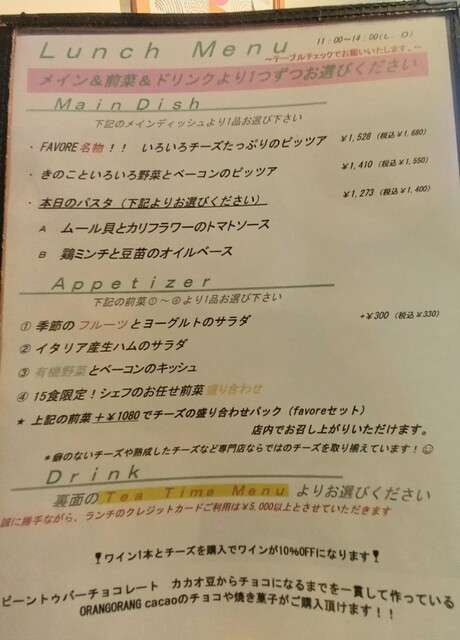 Lunch Menu 11:00~14:00(L.O)
~テーブルチェックでお願いいたします。~
メイン&前菜&ドリンクより1つずつお選びください
Main Dish
下記のメインディッシュより1品お選び下さい
・FAVORE名物!! いろいろチーズたっぷりのピッツア ¥1,528 (税込¥1,680)
・きのこといろいろ野菜とベーコンのピッツア ¥1,410 (税込¥1,550)
・本日のパスタ(下記よりお選びください) ¥1,273 (税込¥1,400)
A ムール貝とカリフラワーのトマトソース
B 鶏ミンチと豆苗のオイルベース
Appetizer
下記の前菜①~④より1品お選び下さい
① 季節のフルーツとヨーグルトのサラダ +¥300 (税込¥330)
② イタリア産生ハムのサラダ
③ 有機野菜とベーコンのキッシュ
④ 15食限定!シェフのお任せ前菜盛り合わせ
★ 上記の前菜+¥1080でチーズの盛り合わせパック(favoreセット)
店内でお召し上がりいただけます。
*癖のないチーズや熟成したチーズなど専門店ならではのチーズを取り揃えています!☺
Drink
裏面のTea Time Menu よりお選びください
誠に勝手ながら、ランチのクレジットカードご利用は¥5,000以上とさせていただきます
ワイン1本とチーズを購入でワインが10%OFFになります
ビーントゥバーチョコレート カカオ豆からチョコになるまでを一貫して作っている
ORANGORANG cacaoのチョコや焼き菓子がご購入頂けます!!